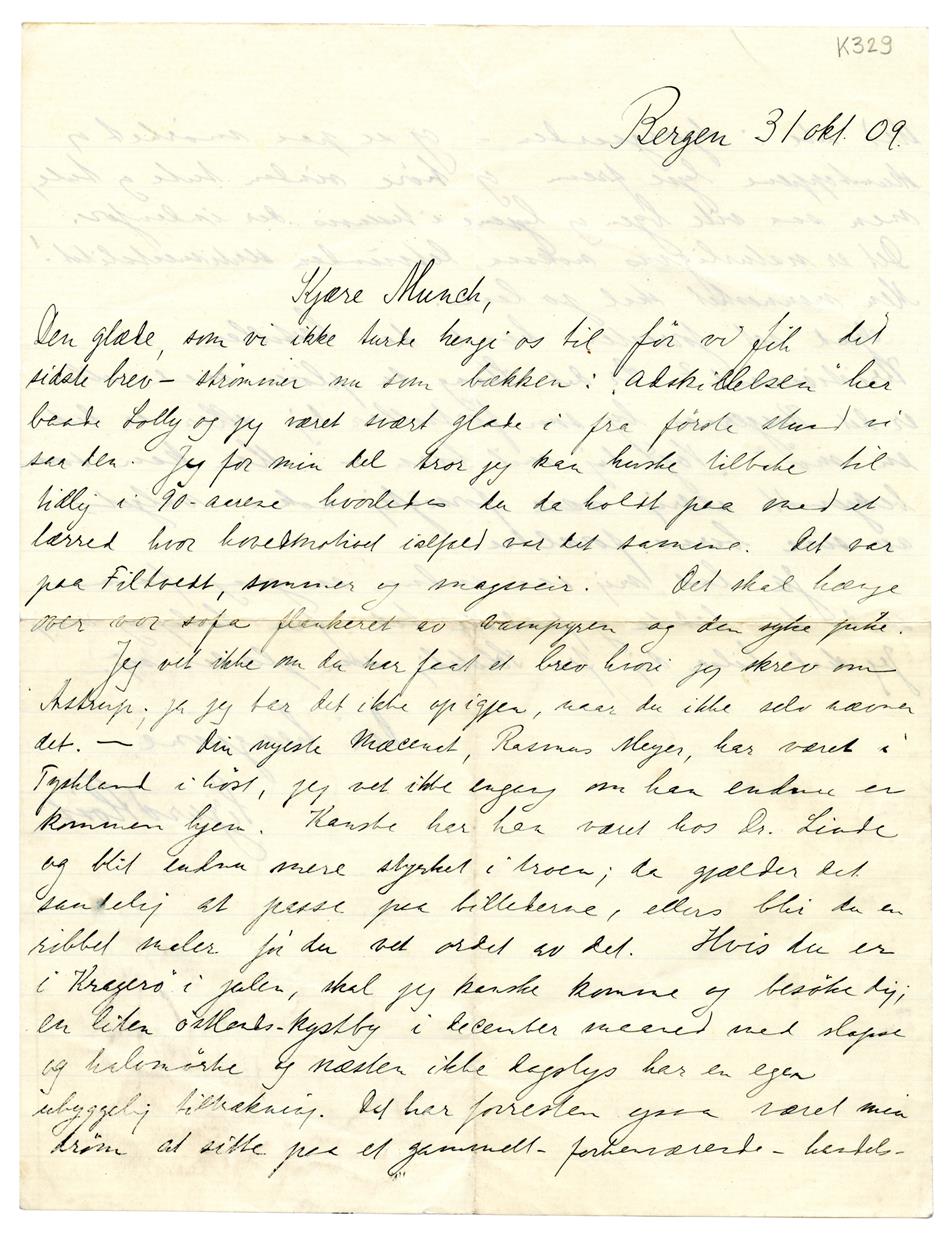 K329
Bergen 31 okt. 09.
Kjære Munch,
Den glæde, som vi ikke turde hengi os til før vi fik dit
sidste brev – strømmer nu som bækken: "Adskillelsen" har
baade Lolly og jeg været svært glade i fra første stund vi
saa den. Jeg for min del tror jeg kan huske tilbake til
tidlig i 90-aarene hvorledes du da holdt paa med et
lærred hvor hovedmotivet ialfald var det samme. Det var
paa Filtvedt, sommer og magsveir. Det skal hænge
over vor sofa flankeret av vampyren og den syke pike.
Jeg vet ikke om du har faat et brev hvori jeg skrev om
Astrup; ja jeg tar det ikke op igjen, naar du ikke selv nævner
det. — Din nyeste Mæcenat, Rasmus Meyer, har været i
Tyskland i høst, jeg vet ikke engang om han endnu er
kommen hjem. Kanske har han været hos Dr. Linde
og blit endnu mere styrket i troen; da gjælder det
sandelig at passe paa billederne, ellers blir du en
ribbet maler før du vet ordet av det. Hvis du er
i Kragerø i julen, skal jeg kanske komme og besøke dig;
en liten østlands-kystby i december maaned med slaps
og halvmørke og næsten ikke dagslys har en egen
uhyggelig tiltrækning. Det har forresten ogsaa været min
drøm at sitte paa et gammelt – forhenværende – handels-